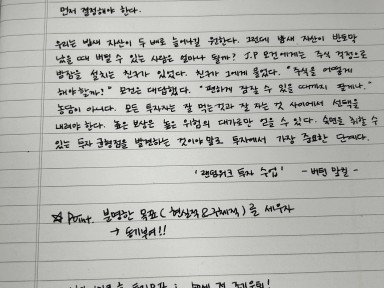 먼저 결정해야 한다.
우리는 밤새 자산이 두 배로 늘어나길 원한다. 그런데 밤새 자산이 반토막
났을 때 버틸 수 있는 사람은 얼마나 될까? J.P 모건에게는 주식 걱정으로
밤잠을 설치는 친구가 있었다. 친구가 그에게 물었다. "주식을 어떻게
해야 할까?" 모건은 대답했다. "편하게 잠잘 수 있을 때까지 팔게나."
농담이 아니다. 모든 투자자는 잘 먹는것과 잘 자는 것 사이에서 선택을
내려야 한다. 높은 보상은 높은 위험의 대가로만 얻을 수 있다. 숙면을 취할 수
있는 투자 균형점을 발견하는 것이야 말로 투자에서 가장 중요한 단계다.
'랜덤워크 투자 수업' - 버턴 말킬 -
☆ Point. 분명한 목표(현실적 & 구체적)를 세우자
→ 동기부여!!